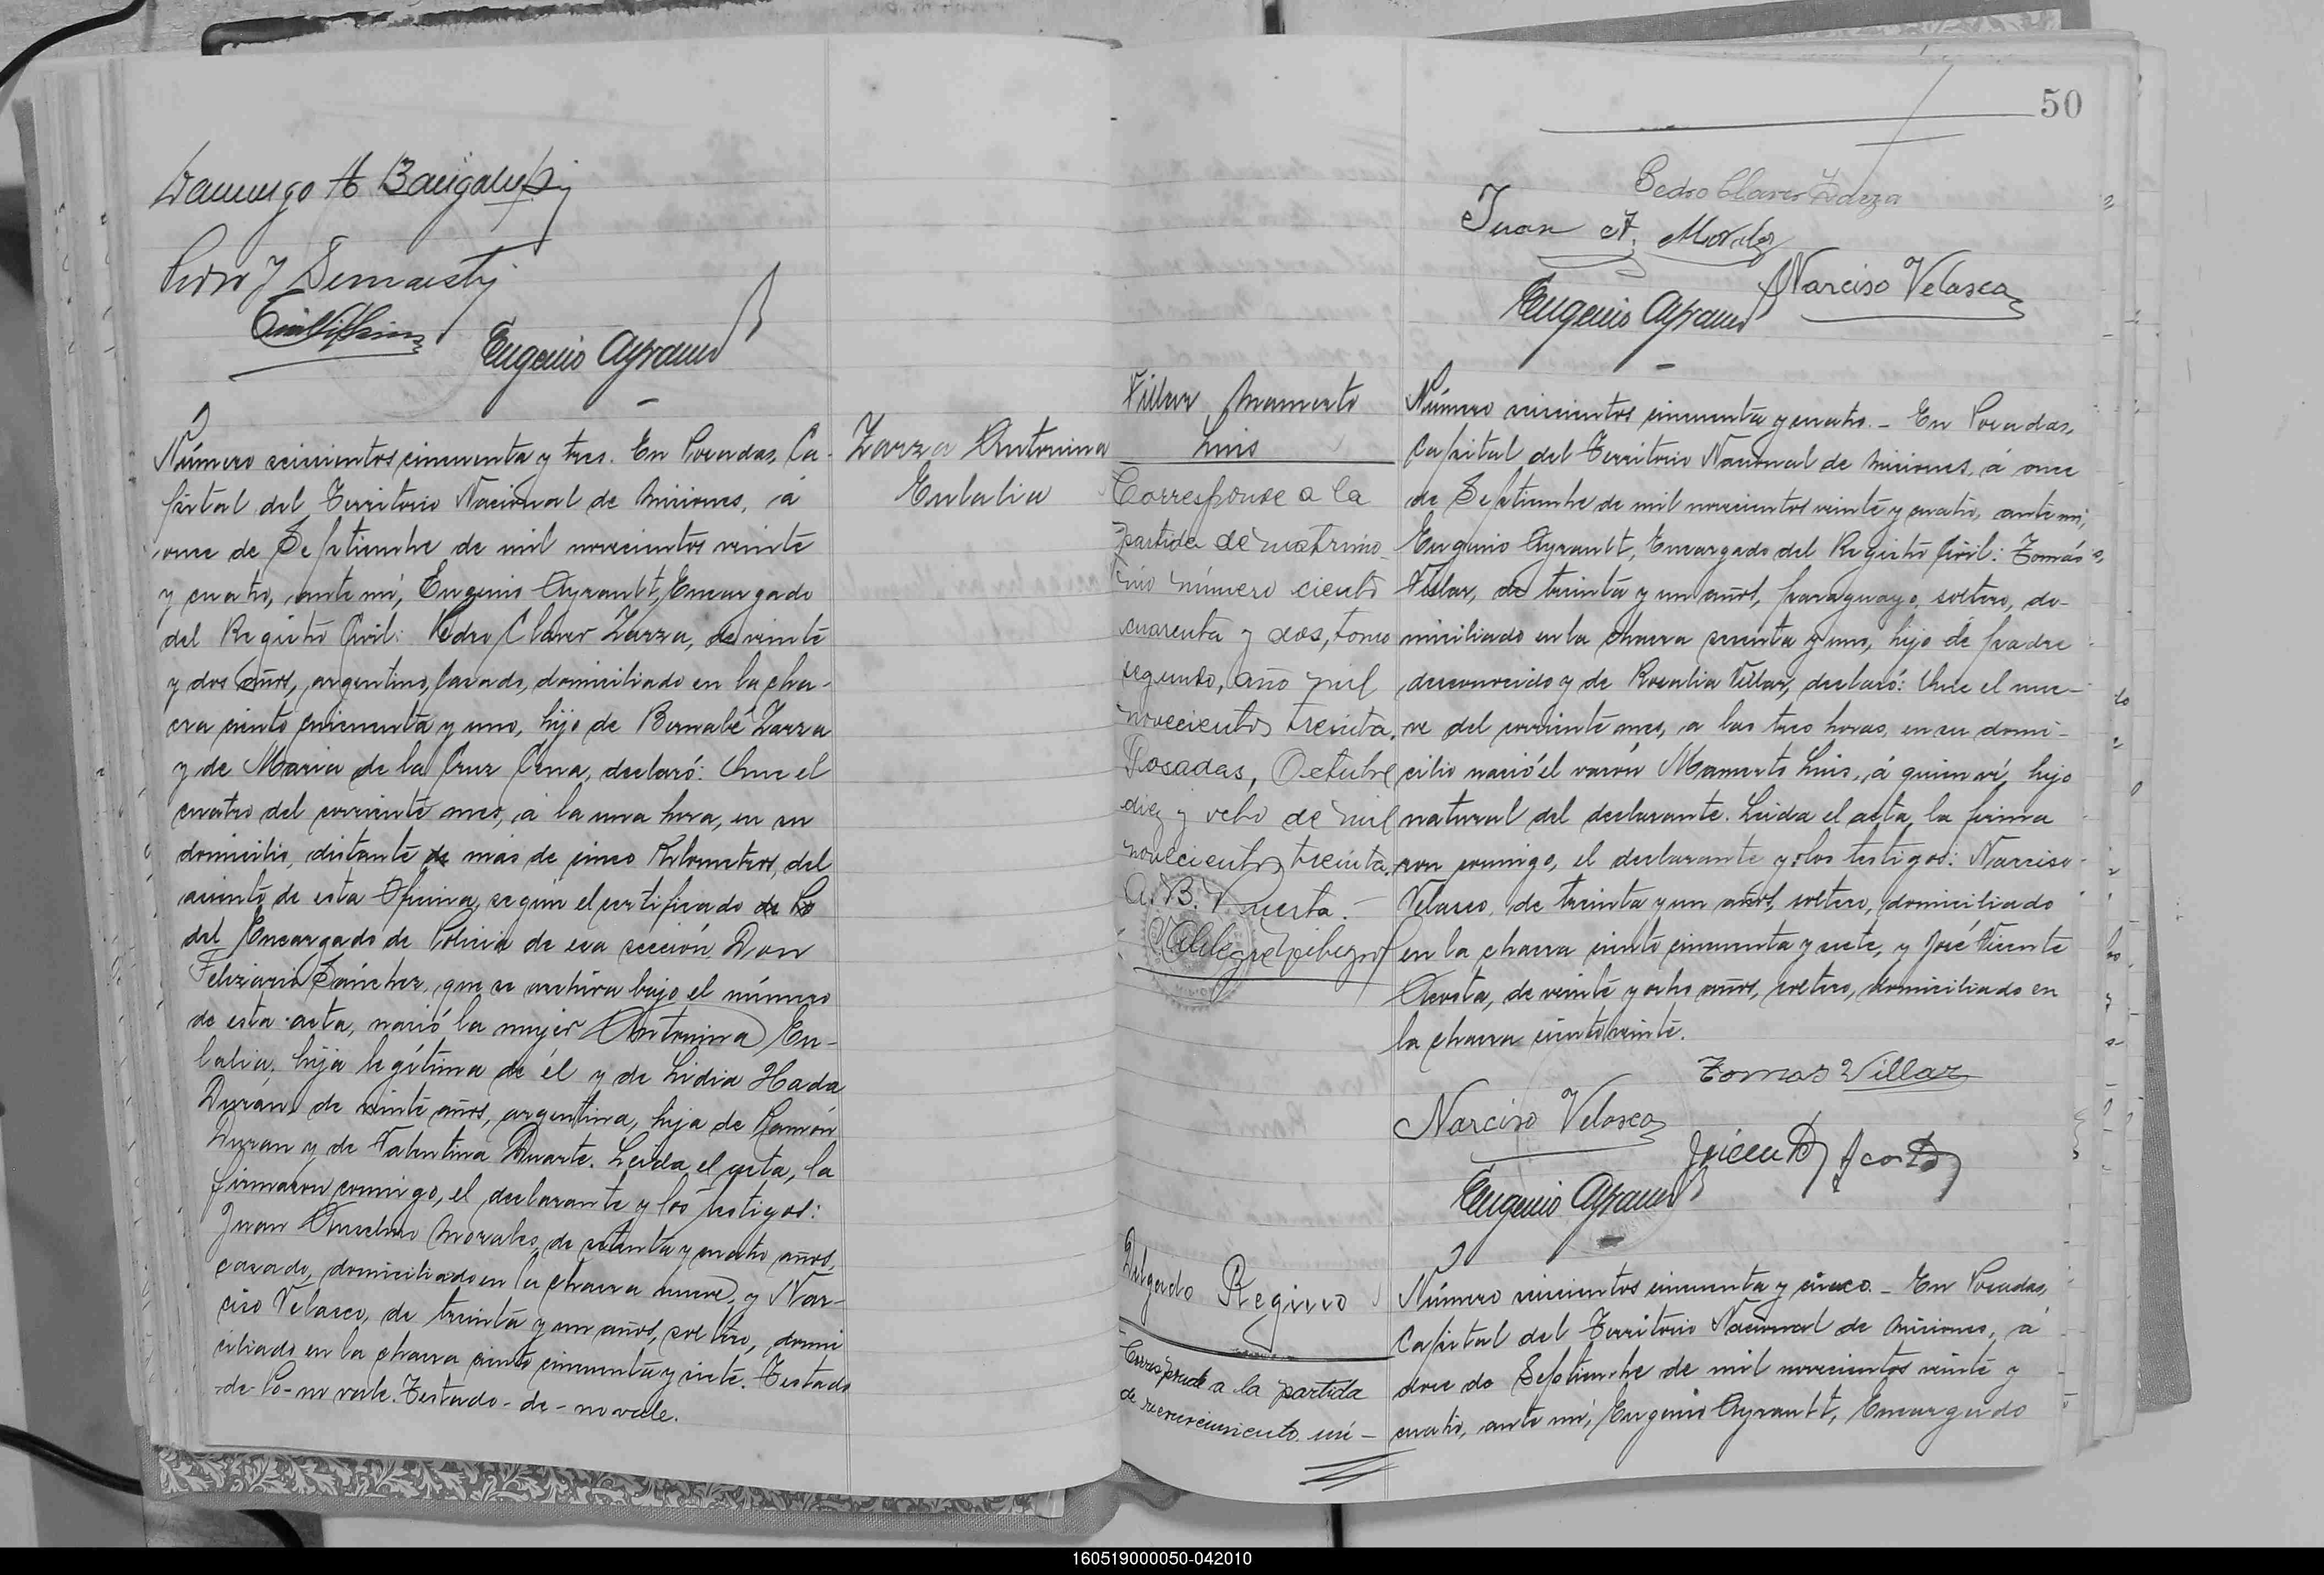 Domingo A Bacigalupi
Eugenio Ayrault
Zarza Antonina
Eulalia
Número seiscientos cincuenta y tres. En Posadas, Ca-
pital del Territorio Nacional de Misiones, á
once de Septiembre de mil novecientos veinte
y cuatro, ante mí, Eugenio Ayrault, Encargado
del Registro Civil: Pedro Claver Zarza, de veinte
y dos años, argentino, casado, domiciliado en la cha-
cra ciento cincuenta y uno, hijo de Bernabé Zarza
y de Maria de la Cruz Cena, declaró: Que el
cuatro del corriente mes, á la una hora, en su
domicilio, distante de más de cinco Kilometros, del
asiento de esta Oficina, según el certificado de lo
del Encargado de Policia de esa sección, Don
Feliziario Sánchez, que se archiva bajo el número
de esta acta, nació la mujer Antonina Eu-
lalia, hija legítima de él y de Lidia Hada
Duran, de veinte años, argentina, hija de Ramón
Duran y de Valentina Duarte. Leida el acta, la
firmaron comigo, el declarante y los testigos:
Juan Anselmo Morales, de setenta y cuatro años,
casado, domiciliado en la chacra nueve, y Nar-
ciso Velasco, de treinta y un años, soltero, domi
ciliado en la chacra ciento cincuenta y siete. Testado
-de-lo-no vale. Testado-de-no vale.
50
Pedro Claver Zarza
Juan A. Morales
Narciso Velasco
Eugenio Ayrault
Villar Mamerto
Luis
Corresponde a la
partida de matrimo
nio número ciento
cuarenta y dos, tomo
segundo, año mil
novecientos treinta.
Posadas, Octubre
diez y ocho de mil
novecientos treinta.
A. B. Puerta.-
Número seiscientos cincuenta y cuatro.- En Posadas,
Capital del Territorio Nacional de Misiones, á once
de Septiembre de mil novecientos veinte y cuatro, ante mí,
Eugenio Ayrault, Encargado del Registro Civil: Tomás
Villar, de treinta y un años, paraguayo, soltero, do-
miciliado en la chacra sesenta y uno, hijo de padre
desconocido y de Rosalia Villar, declaró: Que el nue-
ve del corriente mes, a las tres horas, en su domi-
cilio nació el varón Mamerto Luis, á quien ví, hijo
natural del declarante. Leida el acta, la firma
ron comigo, el declarante y los testigos: Narciso
Velasco, de treinta y un años, soltero, domiciliado
en la chacra ciento cincuenta y siete, y José Vicente
Acosta, de veinte y ocho años, soltero, domiciliado en
la chacra ciento veinte.
Tomas Villar
Narciso Velasco
JVicente Acosta
Eugenio Ayrault
Delgado Regino
Corresponde a la partida
de reconocimiento nú-
Número seiscientos cincuenta y cinco.- En Posadas,
Capital del Territorio Nacional de Misiones, á
doce de Septiembre de mil novecientos veinte y
cuatro, ante mí, Eugenio Ayrault, Encargado
160519000050-042010